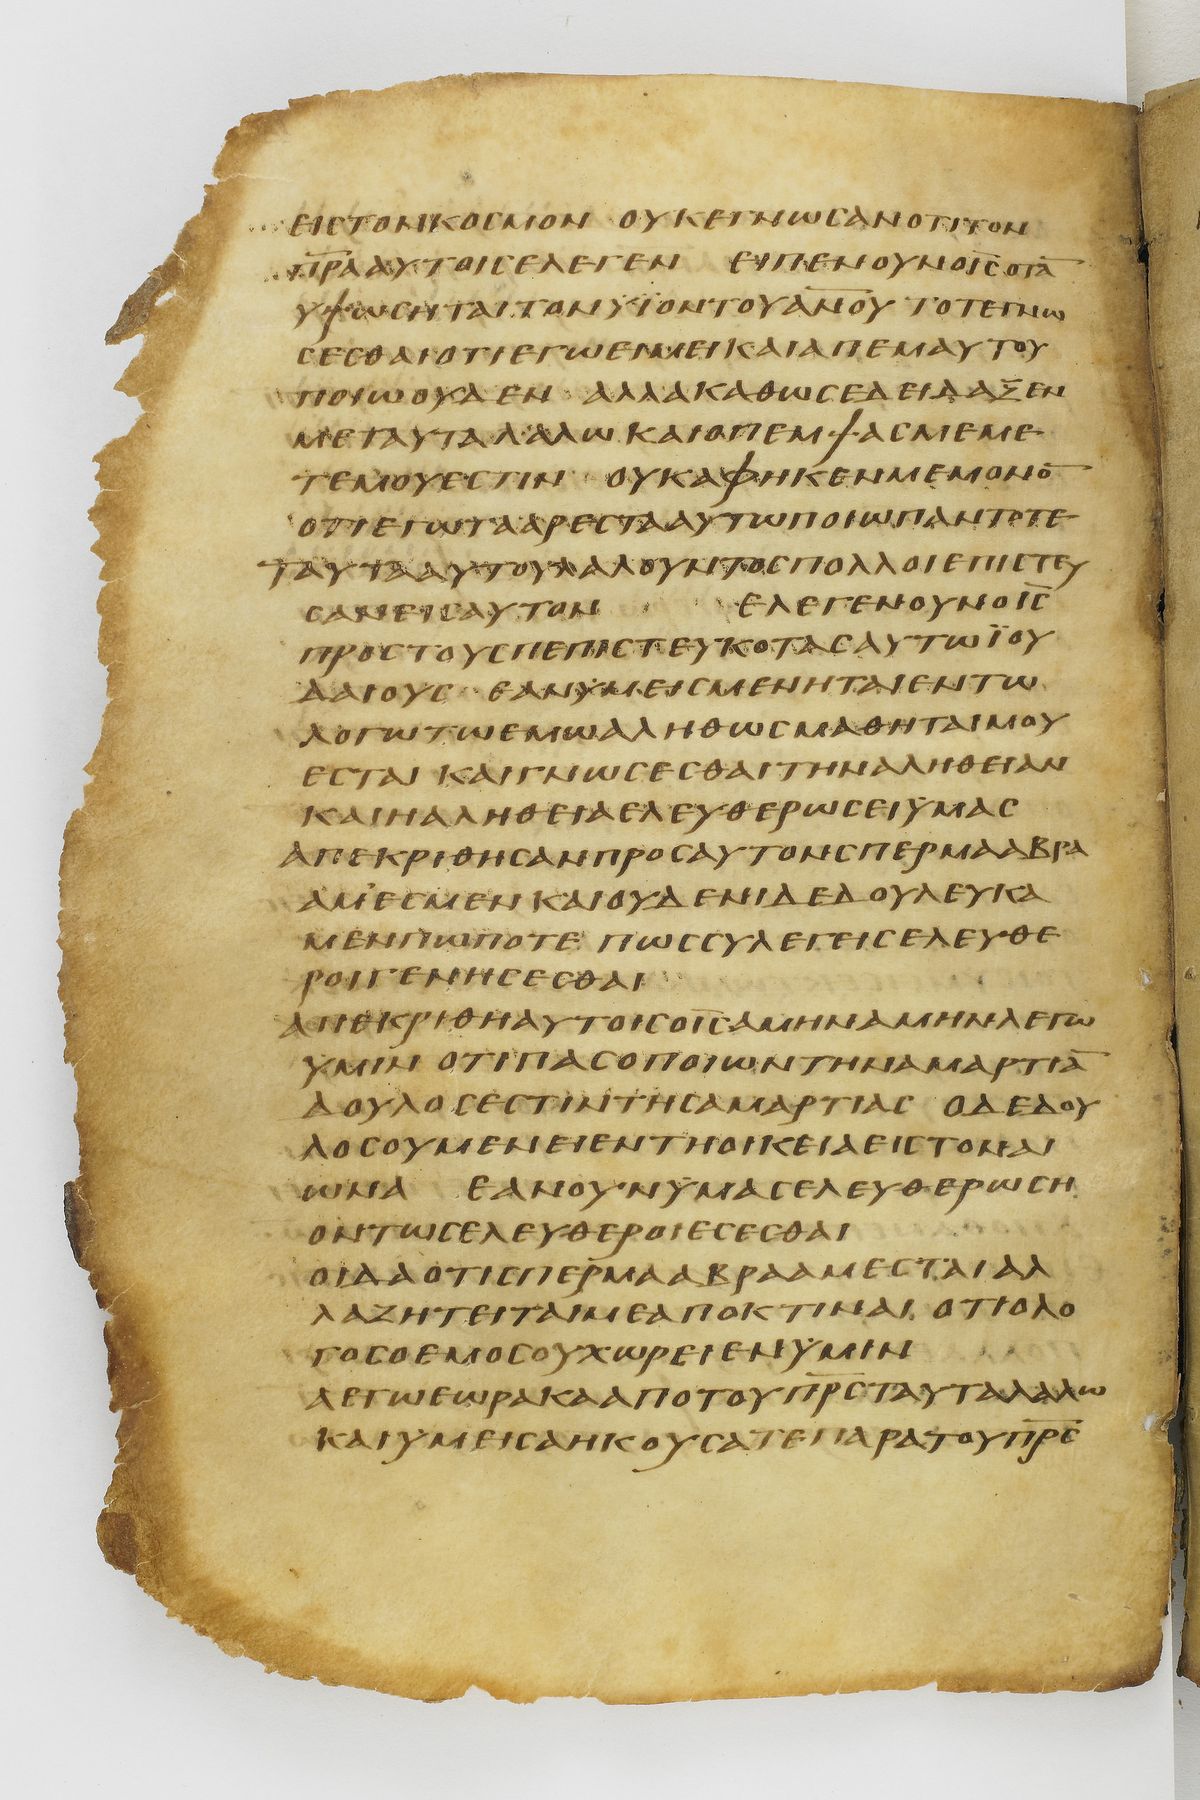 ειςτονκοςμον ουκεγνωςανοτιτον
π̅ρ̅α̅αυτοιςελεγεν ειπενουνοι̅ς̅οτα̅
υψωςηταιτονυϊοντουα̅ν̅ο̅υτοτεγνω
ςεςθαιοτιεγωειμεικαιαπεμαυτου
ποιωουδεν αλλακαθωςεδειδαξεν
μεταυταλαλω καιοπεμψαςμεμε
τεμουεςτιν ουκαφηκενμεμονο̅
οτιεγωτααρεστααυτωποιωπαντοτε
ταυτααυτουλαλουντοςπολλοιεπιςτευ
ςανειςαυτον ελεγενουνοι̅ς̅
προςτουςπεπιςτευκοταςαυτωϊου
δαιους εανϋμειςμενηταιεντω
λογωτωεμωαληθωςμαθηταιμου
εςται καιγνωςεςθαιτηναληθειαν
καιηαληθειαελευθερωςειϋμας
απεκριθηςανπροςαυτονςπερμααβρα
αμεςμενκαιουδενιδεδουλευκα
μενπωποτε πωςςυλεγειςελευθε
ροιγενηςεςθαι
απεκριθηαυτοιςοι̅ς̅αμηναμηνλεγω
υμιν οτιπαςοποιωντηναμαρτια̅
δουλοςεςτιντηςαμαρτιας οδεδου
λοςουμενειεντηοικειαειςτοναι
ωνα εανουνϋμαςελευθερωςη
οντωςελευθεροιεςεςθαι
οιδαοτιςπερμααβρααμεςταιαλ
λαζητειταιμεαποκτιναι οτιολο
γοςοεμοςουχωρειενϋμιν
αεγωεωρακααποτουπ̅ρ̅ς̅ταυταλαλω
καιυμειςαηκουςατεπαρατουπ̅ρ̅ς̅